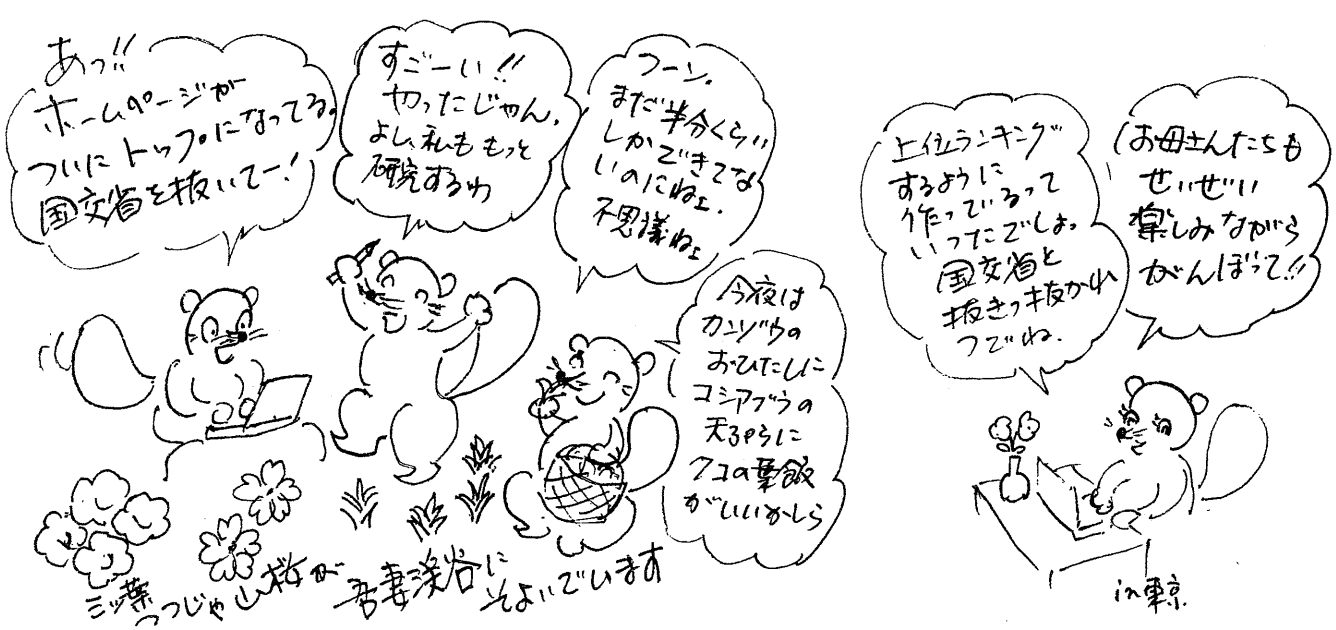 あっ!!
ホームページが
ついにトップになってる。
国交省を抜いてー!
すごーい!!
やったじゃん。
よし、私ももっと
研究するわ
フーン。
まだ半分くらい
しかできてな
いのにねェ.
不思議ねェ
今夜は
カンゾウの
おひたしに
コシアブラの
天ぷらに
クコの葉飯
がいいかしら
上位ランキング
するように
作っているって
いったでしょ。
国交省と
抜きつ抜かれ
つでね.
お母さんたちも
せいぜい
楽しみながら
がんばって!!
三ッ葉
つつじや山桜が
吾妻渓谷に
そよいでいます
in東京